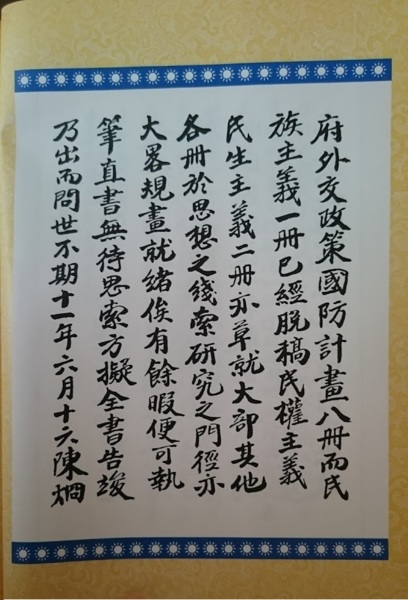 府外交政策國防計畫八冊而民
族主義一冊已經脫稿民權主義
民生主義二冊亦草就大部其他
各冊於思想之线索研究之門徑亦
大畧規畫就緒俟有餘暇便可執
筆直書無待思索方擬全書告竣
乃出而問世不期十一年六月十六陳烱